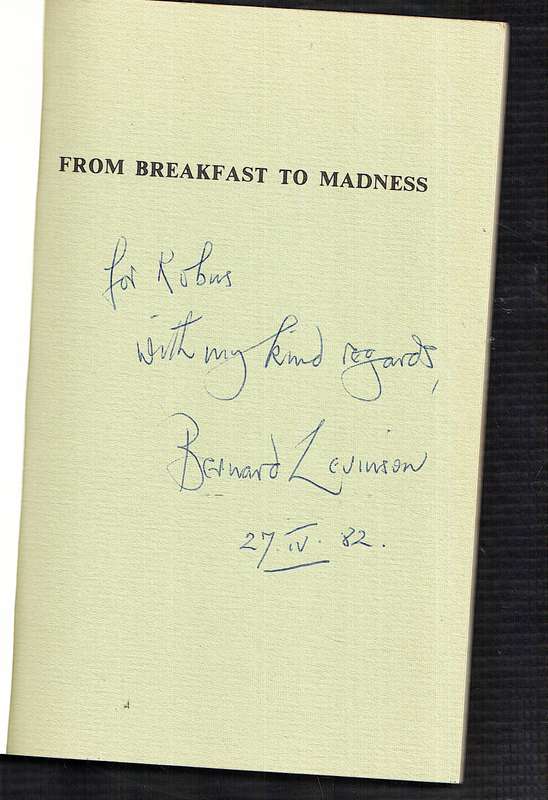 FROM BREAKFAST TO MADNESS
for Kobus
with my kind regards,
Bernard Levinson
27. IV. 82.